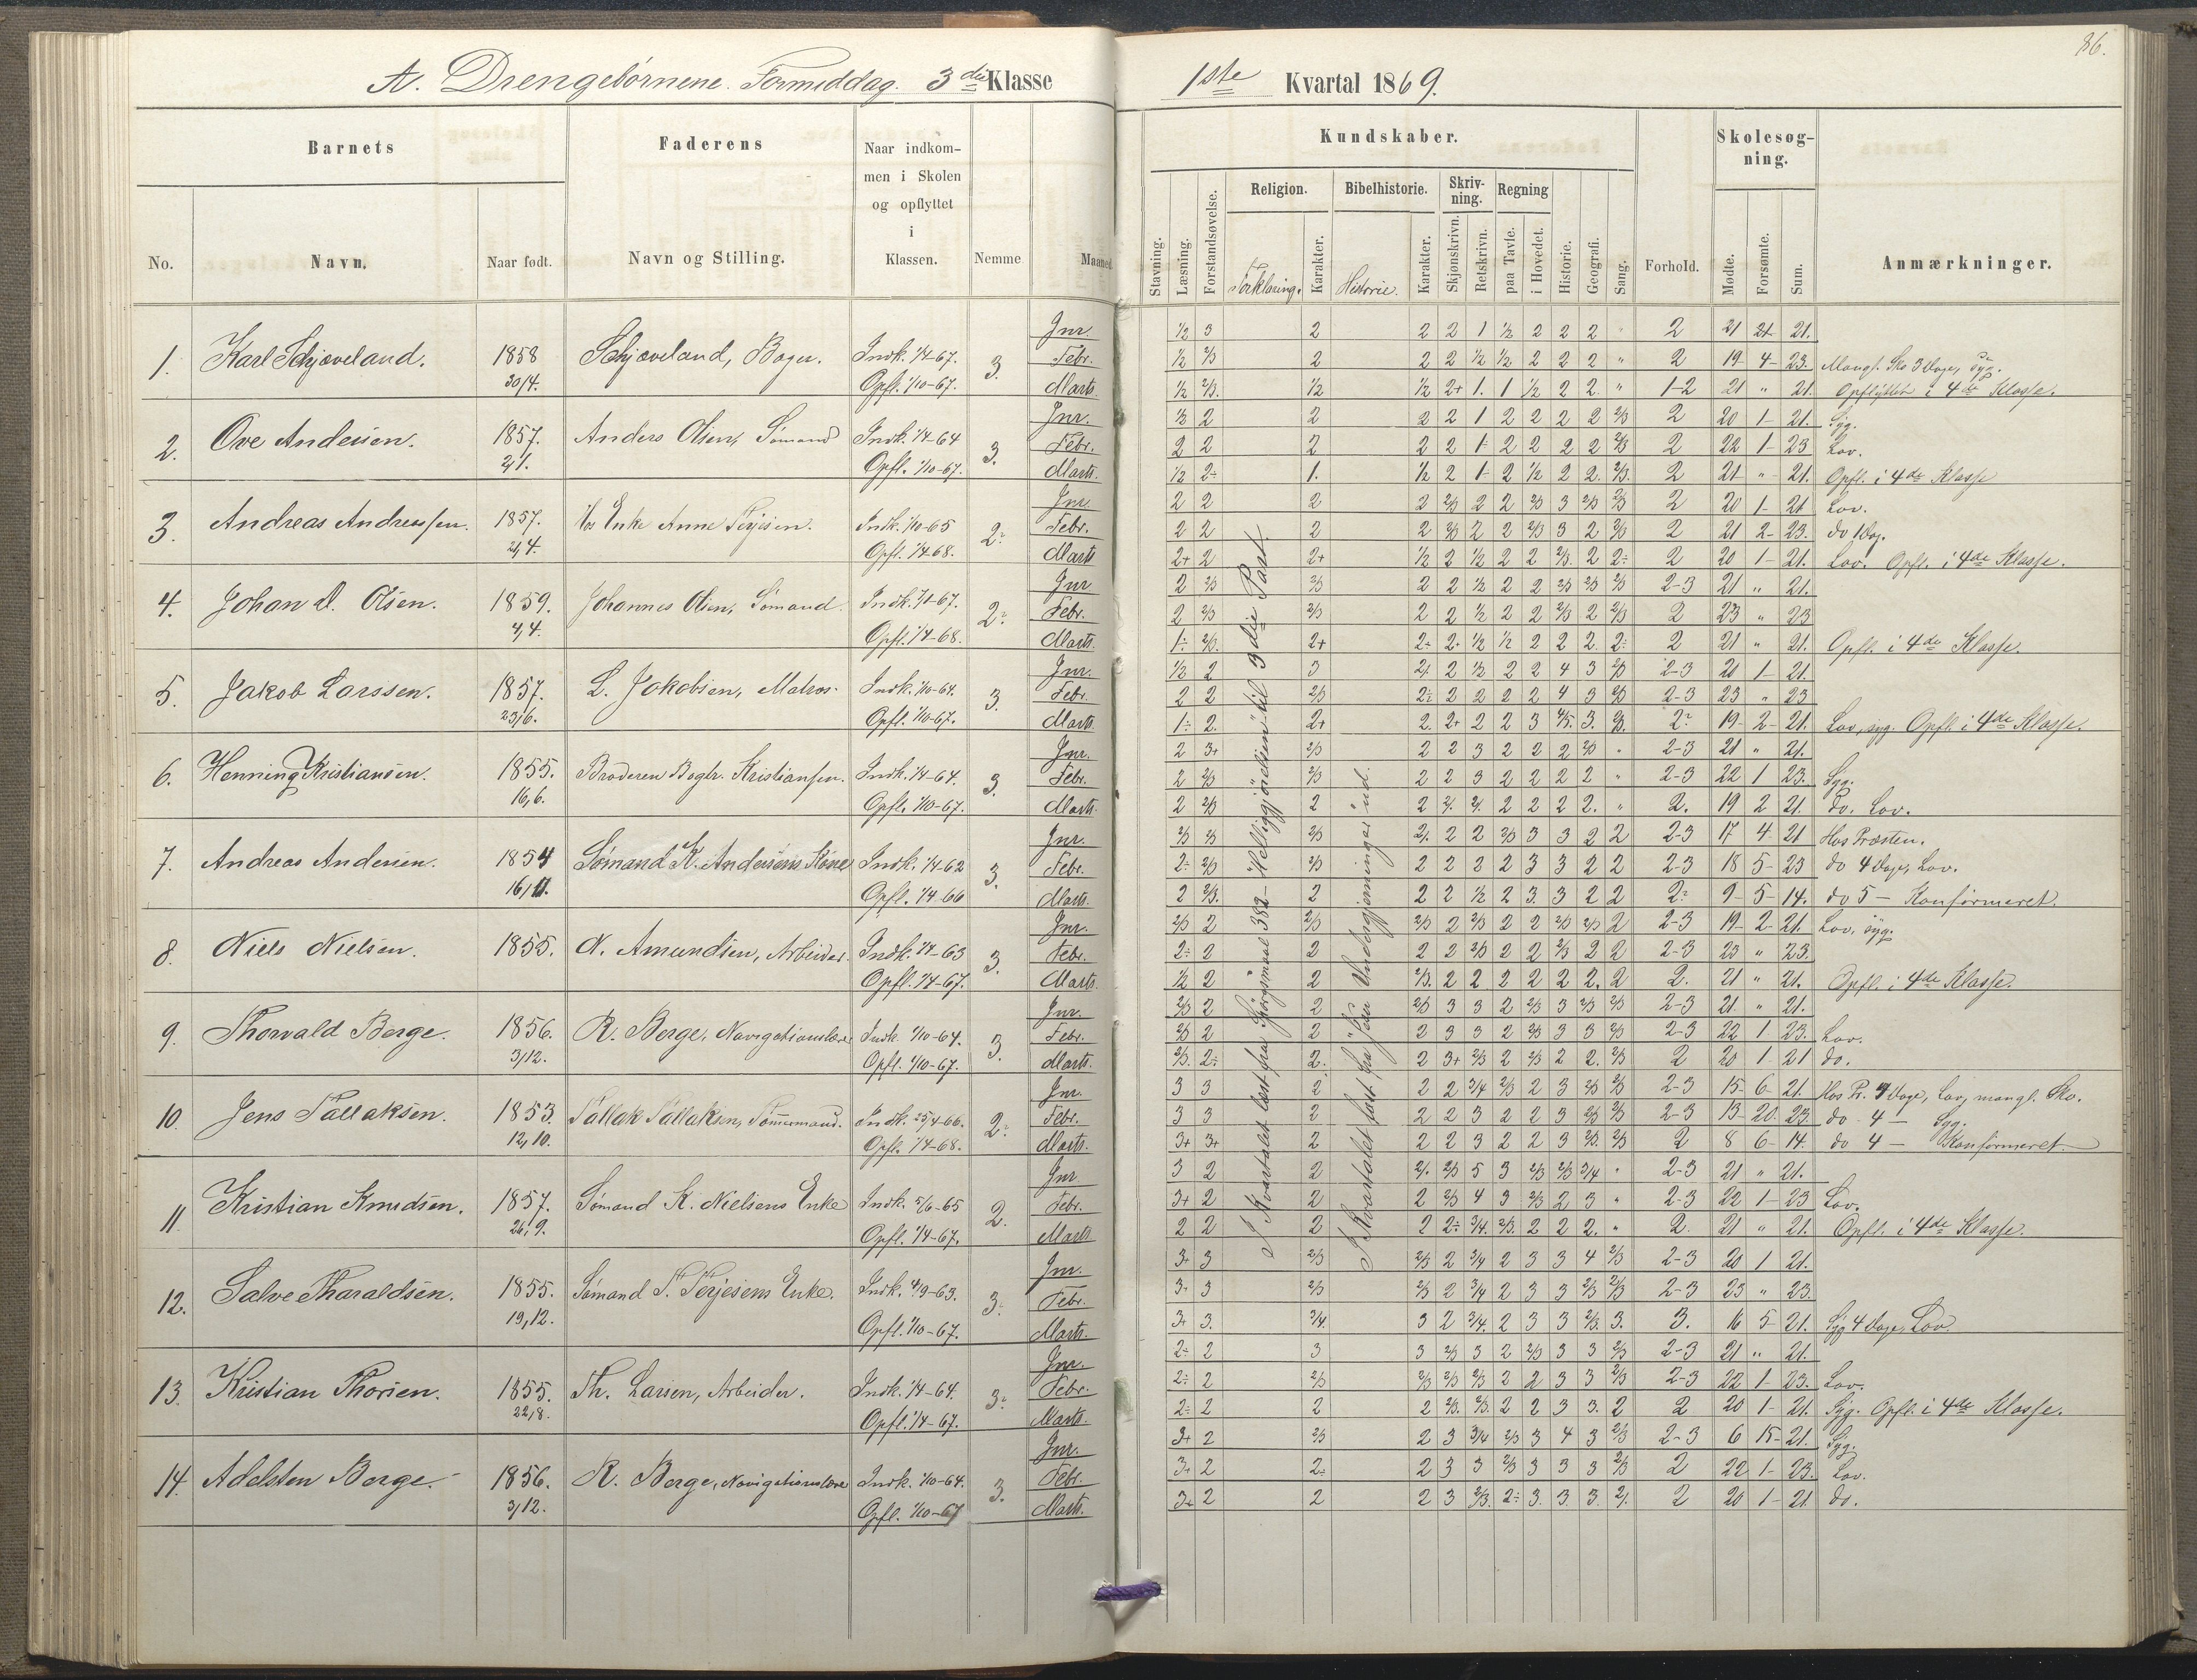 86.
A. Drengebørnene. Formiddag. 3die Klasse
1ste Kvartal 1869.
Barnets
Faderens
Naar indkom-
men i Skolen
og opflyttet
i
Klassen.
No.
Navn.
Naar født.
Navn og Stilling.
Nemme
Maaned
Kundskaber.
Skolesøg-
ning.
Religion.
Bibelhistorie.
Skriv-
ning.
Regning
Stavning.
Læsning.
Forstandsøvelse.
Forklaring.
Karakter.
Historie.
Karakter.
Skjønskrivn.
Retskrivn.
paa Tavle.
i Hovedet.
Historie.
Geografi.
Sang.
Forhold.
Mødte.
Forsømte.
Sum.
Anmærkninger.
1. Karl Schjoveland. 1858 30/4. Schjoveland, Bager. Indk. 1/4-67. Opfl. 1/10-67. 3.
Jnr. 1/2 3 2 2 2 1 1/2 2 2 2 " 2 21 21.
Febr. 1/2 2/3 2 2 2 1/2 1/2 2 2 2 " 2 19 4 23. Mangl. Sko 3 Dage, Syg.
Marts. 1/2 2/3. 1/2 1/2 2+ 1. 1 1/2 2 2. " 1-2 21 " 21. Opflyttet i 4de Klasse.
2. Ove Andersen. 1857. 2/1. Anders Olsen, Sømand Indk. 1/4-64 Opfl. 1/10-67. 3.
Jnr. 1/2 2 2 2 2 1 2 2 2 2 2/3 2 20 1 21. Syg.
Febr. 2 2 2 2 2 1÷ 2 2 2 2 2/3 2 22 1 23 Lov.
Marts. 1/2 2÷ 1. 1/2 2 1÷ 2 1/2 2 2. 2/3. 2 21 " 21. Opfl. i 4de Klasse
3. Andreas Andreassen. 1857. 21/4. Hos Enke Anne Terjesen. Indk. 1/10-65 Opfl. 1/4-68. 2÷
Jnr. 2 2 2 2 2/3 2 2 2/3 3 2/3 2/3 2 20 1 21 Lov.
Febr. 2 2 2 2 2/3 2 2 2/3 3 2 2/3 2 21 2 23. do 1 Dag.
Marts 2+ 2 2+ 1/2 2 1/2 2 2 2/3. 2 2÷ 2 20 1 21. Lov. Opfl. i 4de Klasse.
4. Johan A. Olsen. 1859. 4/4. Johannes Olsen, Sømand. Indk. 7/1-67. Opfl. 1/4-68. 2÷
Jnr 2 2/3 2/3 2 2 1/2 2 2 2/3 2/3 2/3 2-3 21 " 21.
Febr. 2 2/3 2/3 2 2 1/2 2 2 2/3 2 2/3 2 23 " 23
Marts. 1÷ 2/3. 2+ 2÷ 2+ 1/2 1/2 2 2 2. 2÷ 2 21 " 21. Opfl. i 4de Klasse.
5. Jakob Larssen. 1857. 23/6. L. Jakobsen, Matros. Indk. 1/10-64. Opfl. 1/10-67. 3.
Jnr. 1/2 2 3 2/. 2 1/2 2 2 4 3 2/3 2-3 20 1 21.
Febr. 2 2 2/3 2÷ 2 2 2 2 4 3 2/3 2-3 23 " 23
Marts 1÷ 2. 2+ 2. 2+ 2 2 3 4/5. 3. 2/3. 2÷ 19 2 21. Lov, syg. Opfl. i 4de Klasse.
6. Henning Kristiansen. 1855. 16,6. Broderen Bogtr. Kristiansen. Indk. 1/4-64. Opfl. 1/10-67. 3.
Jnr. 2 3+ 2/3 2 2 3 2 2 2 2/3 " 2-3 21 " 21.
Febr. 2 2/3 2/3 2 2 3 2 2 2 2 " 2-3 22 1 23. Syg.
Marts 2 2/3 2 2 2/. 2/. 2 2 2 2. " 2. 19 2 21. do. Lov.
7. Andreas Andersen. 1854 16,11. Sømand K. Andersens Kone Indk. 1/4-62 Opfl. 1/4-66 3.
Jnr. 2/3 2/3 2/3 2/. 2 2 2/3 3 3 2 2 2-3 17 4 21 Hos Præsten.
Febr. 2÷ 2/3 2/3 2 2 2 2 3 3 2 2 2-3 18 5 23 do 4 Dage, Lov.
Marts. 2 2/3. 2 2 2 1/2 2 3. 3 2 2 2÷ 9 5 14. do 5 — Konfirmeret.
8. Niels Nielsen. 1855. N. Amundsen, Arbeider. Indk. 1/4-63 Opfl. 1/4-67. 3.
Jnr. 2/3 2 2/3 2/3 2 2/3 2 2 2/3 2/3 2 2-3 19 2 21. Lov, syg.
Febr. 2÷ 2 2 2 2 2/3 2 2 2/3 2 2 2-3 23 " 23.
Marts. 1/2 2 2 2/3. 2 2 2 2 2 2. 2 2. 21 " 21. Opfl. i 4de Klasse.
9. Thorvald Berge. 1856. 3/12. R. Berge, Navigationslære Indk. 1/10-64. Opfl. 1/10-67. 3.
Jnr. 2/3 2 2 2/3 3 3 2 2/3 3 2/3 2/3 2-3 21 " 21.
Febr. 2/3 2 2 2 3 3 2 2/3 3 3 2/3 2-3 22 1 23. Lov.
Marts. 2/3. 2÷ 2. 2 3+ 2/3 2 2/3 2 2. 2/3 2 20 1 21 do.
10. Jens Tallaksen. 1853. 12,10. Tallak Tallaksen, Tømmermand. Indk. 25/4-66. Opfl. 1/4-68. 2÷
Jnr. 3 3 2 2 2 3/4 2/3 2 3 2/3 2/3 2-3 15 6 21. Hos Pr. 4 Dage, Lov, mangl. Sko.
Febr. 3 3 2 2 2 3 2 2 3 2/3 2/3 2-3 13 20. 23. do 4 — Syg.
Marts. 3+ 3+ 2 2 2 3 2 2 3 2/3. 2/3 2 8 6 14. do 4 — Konfirmeret
11. Kristian Knudsen. 1857. 26,9. Sømand K. Nielsens Enke Indk. 5/6-65 Opfl. 1/4-67. 2.
Jnr 3 2 2 2/. 2/3 5 3 2/3 2/3 3/4 " 2-3 21 " 21.
Febr. 3+ 2 2 2 2/3 4 3 2/3 2 3 " 2-3 22 1 23 Lov.
Marts 2 2 2 2 2÷ 3/4. 2/3. 2 2 2. " 2. 21 " 21. Opfl. i 4de Klasse.
12. Salve Tharaldsen. 1855. 19,12. Sømand T. Terjesens Enke. Indk. 4/9-63. Opfl. 1/10-67. 3÷
Jnr. 3+ 3 2/3 2/3 2 3/4 2 3 3 4 2/3 2-3 20 1 21.
Febr. 3+ 3 2/3 2/3 2 3/4 2 3 3 2/3 2/3 2-3 23 " 23.
Marts. 3+ 3. 3/4. 3 2 3/4. 2 3 3 2/3. 3. 3. 16 5 21. Syg 4 Dage, Lov.
13. Kristian Thorsen. 1855. 22,8. Th. Larsen, Arbeider. Indk. 1/4-64. Opfl. 1/4-67. 3÷
Jnr. 2÷ 2 3 3 2/3 3 2 2/3 3 3 2/3 2-3 21 " 21.
Febr. 2÷ 2 2/3 2/3 2/3 2/3 2 2 3 3 2/3 2-3 22 1 23. Lov.
Marts. 2÷ 2 2 2 2/3. 2/3. 2 2 3 3. 2 2 20 1 21. Syg. Opfl. i 4de Klasse.
14. Adelsten Berge. 1856. 3/12. R. Berge, Navigationslære Indk. 1/10-64. Opfl. 1/10-67 3.
Jnr. 3+ 2 2/3 2 3 3/4 2/3 3 4 3 2/3 2-3 6 15 21. Syg.
Febr. 3+ 2 2÷ 2 3 3 2/3 3 3 3 2/3 2 22 1 23. Lov.
Marts. 3+ 2 2 2 3 2/3. 2÷ 3. 3. 3. 2/. 2 20 1 21 do.
I Kvartalet læst fra Spørgsmaal 382 — "Helliggjørelsen" til 3die Part.
I Kvartalet læst fra "Jesu Undergjerninger" ud.